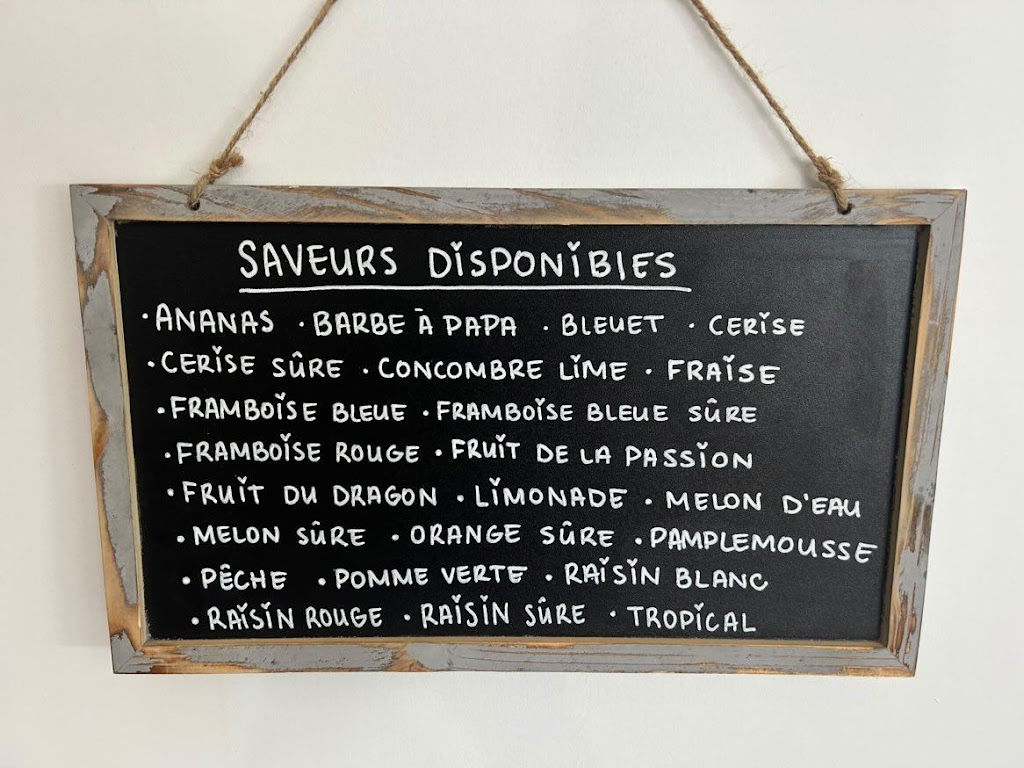 SAVEURS DISPONIBLES
· ANANAS · BARBE À PAPA · BLEUET · CERISE
· CERISE SÛRE · CONCOMBRE LIME · FRAISE
· FRAMBOISE BLEUE · FRAMBOISE BLEUE SÛRE
· FRAMBOISE ROUGE · FRUIT DE LA PASSION
· FRUIT DU DRAGON · LIMONADE · MELON D'EAU
· MELON SÛRE · ORANGE SÛRE · PAMPLEMOUSSE
· PÊCHE · POMME VERTE · RAISIN BLANC
· RAISIN ROUGE · RAISIN SÛRE · TROPICAL